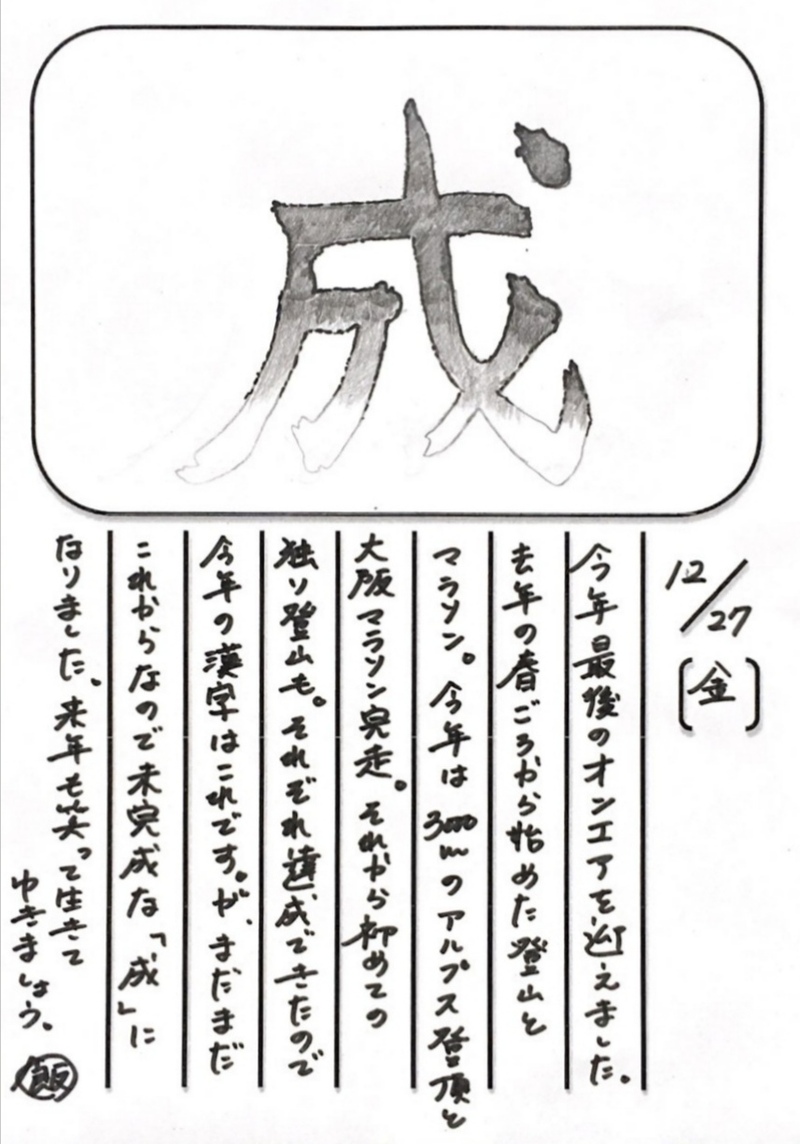 成
12/27(金)
今年最後のオンエアを迎えました。
去年の春ごろから始めた登山と
マラソン。今年は3000mのアルプス登頂と
大阪マラソン完走。それから初めての
独り登山も。それぞれ達成できたので
今年の漢字はこれです。が、まだまだ
これからなので未完成な「成」に
なりました。来年も笑って生きて
ゆきましょう。
飯